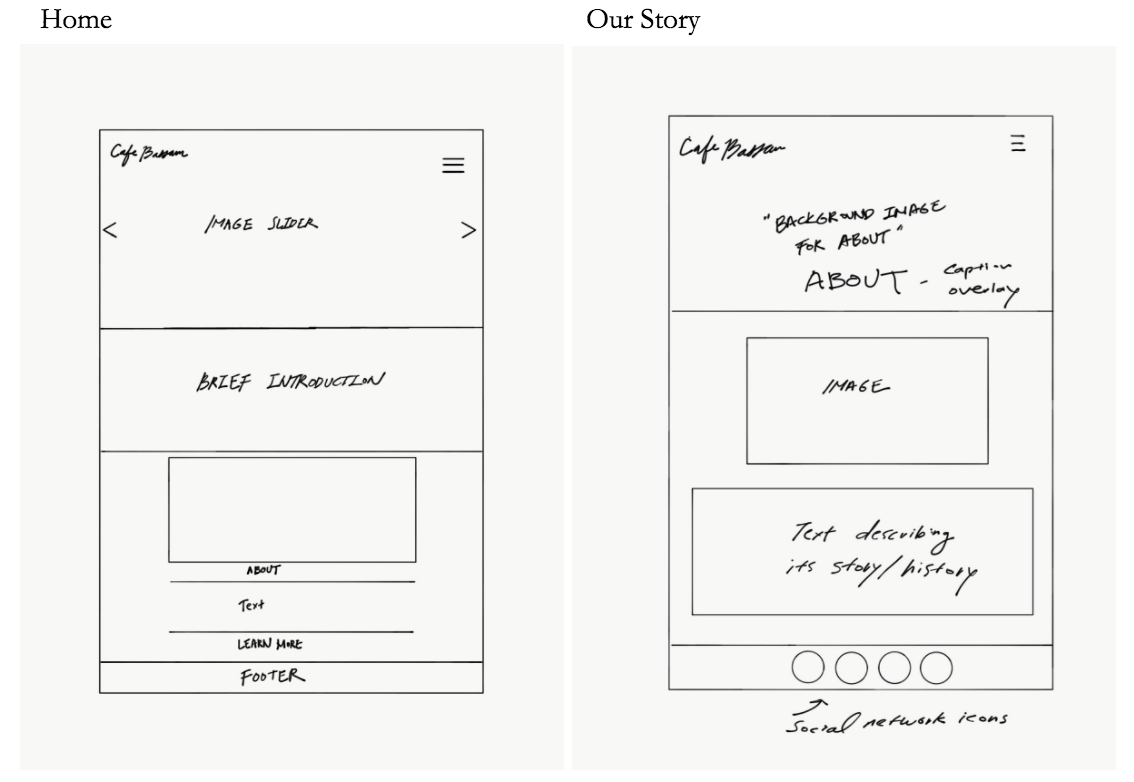 Home
Cafe Bassam
IMAGE SLIDER
BRIEF INTRODUCTION
ABOUT
Text
LEARN MORE
FOOTER
Our Story
Cafe Bassam
"BACKGROUND IMAGE
FOR ABOUT"
ABOUT - caption
overlay
IMAGE
Text describing
its story/history
Social network icons